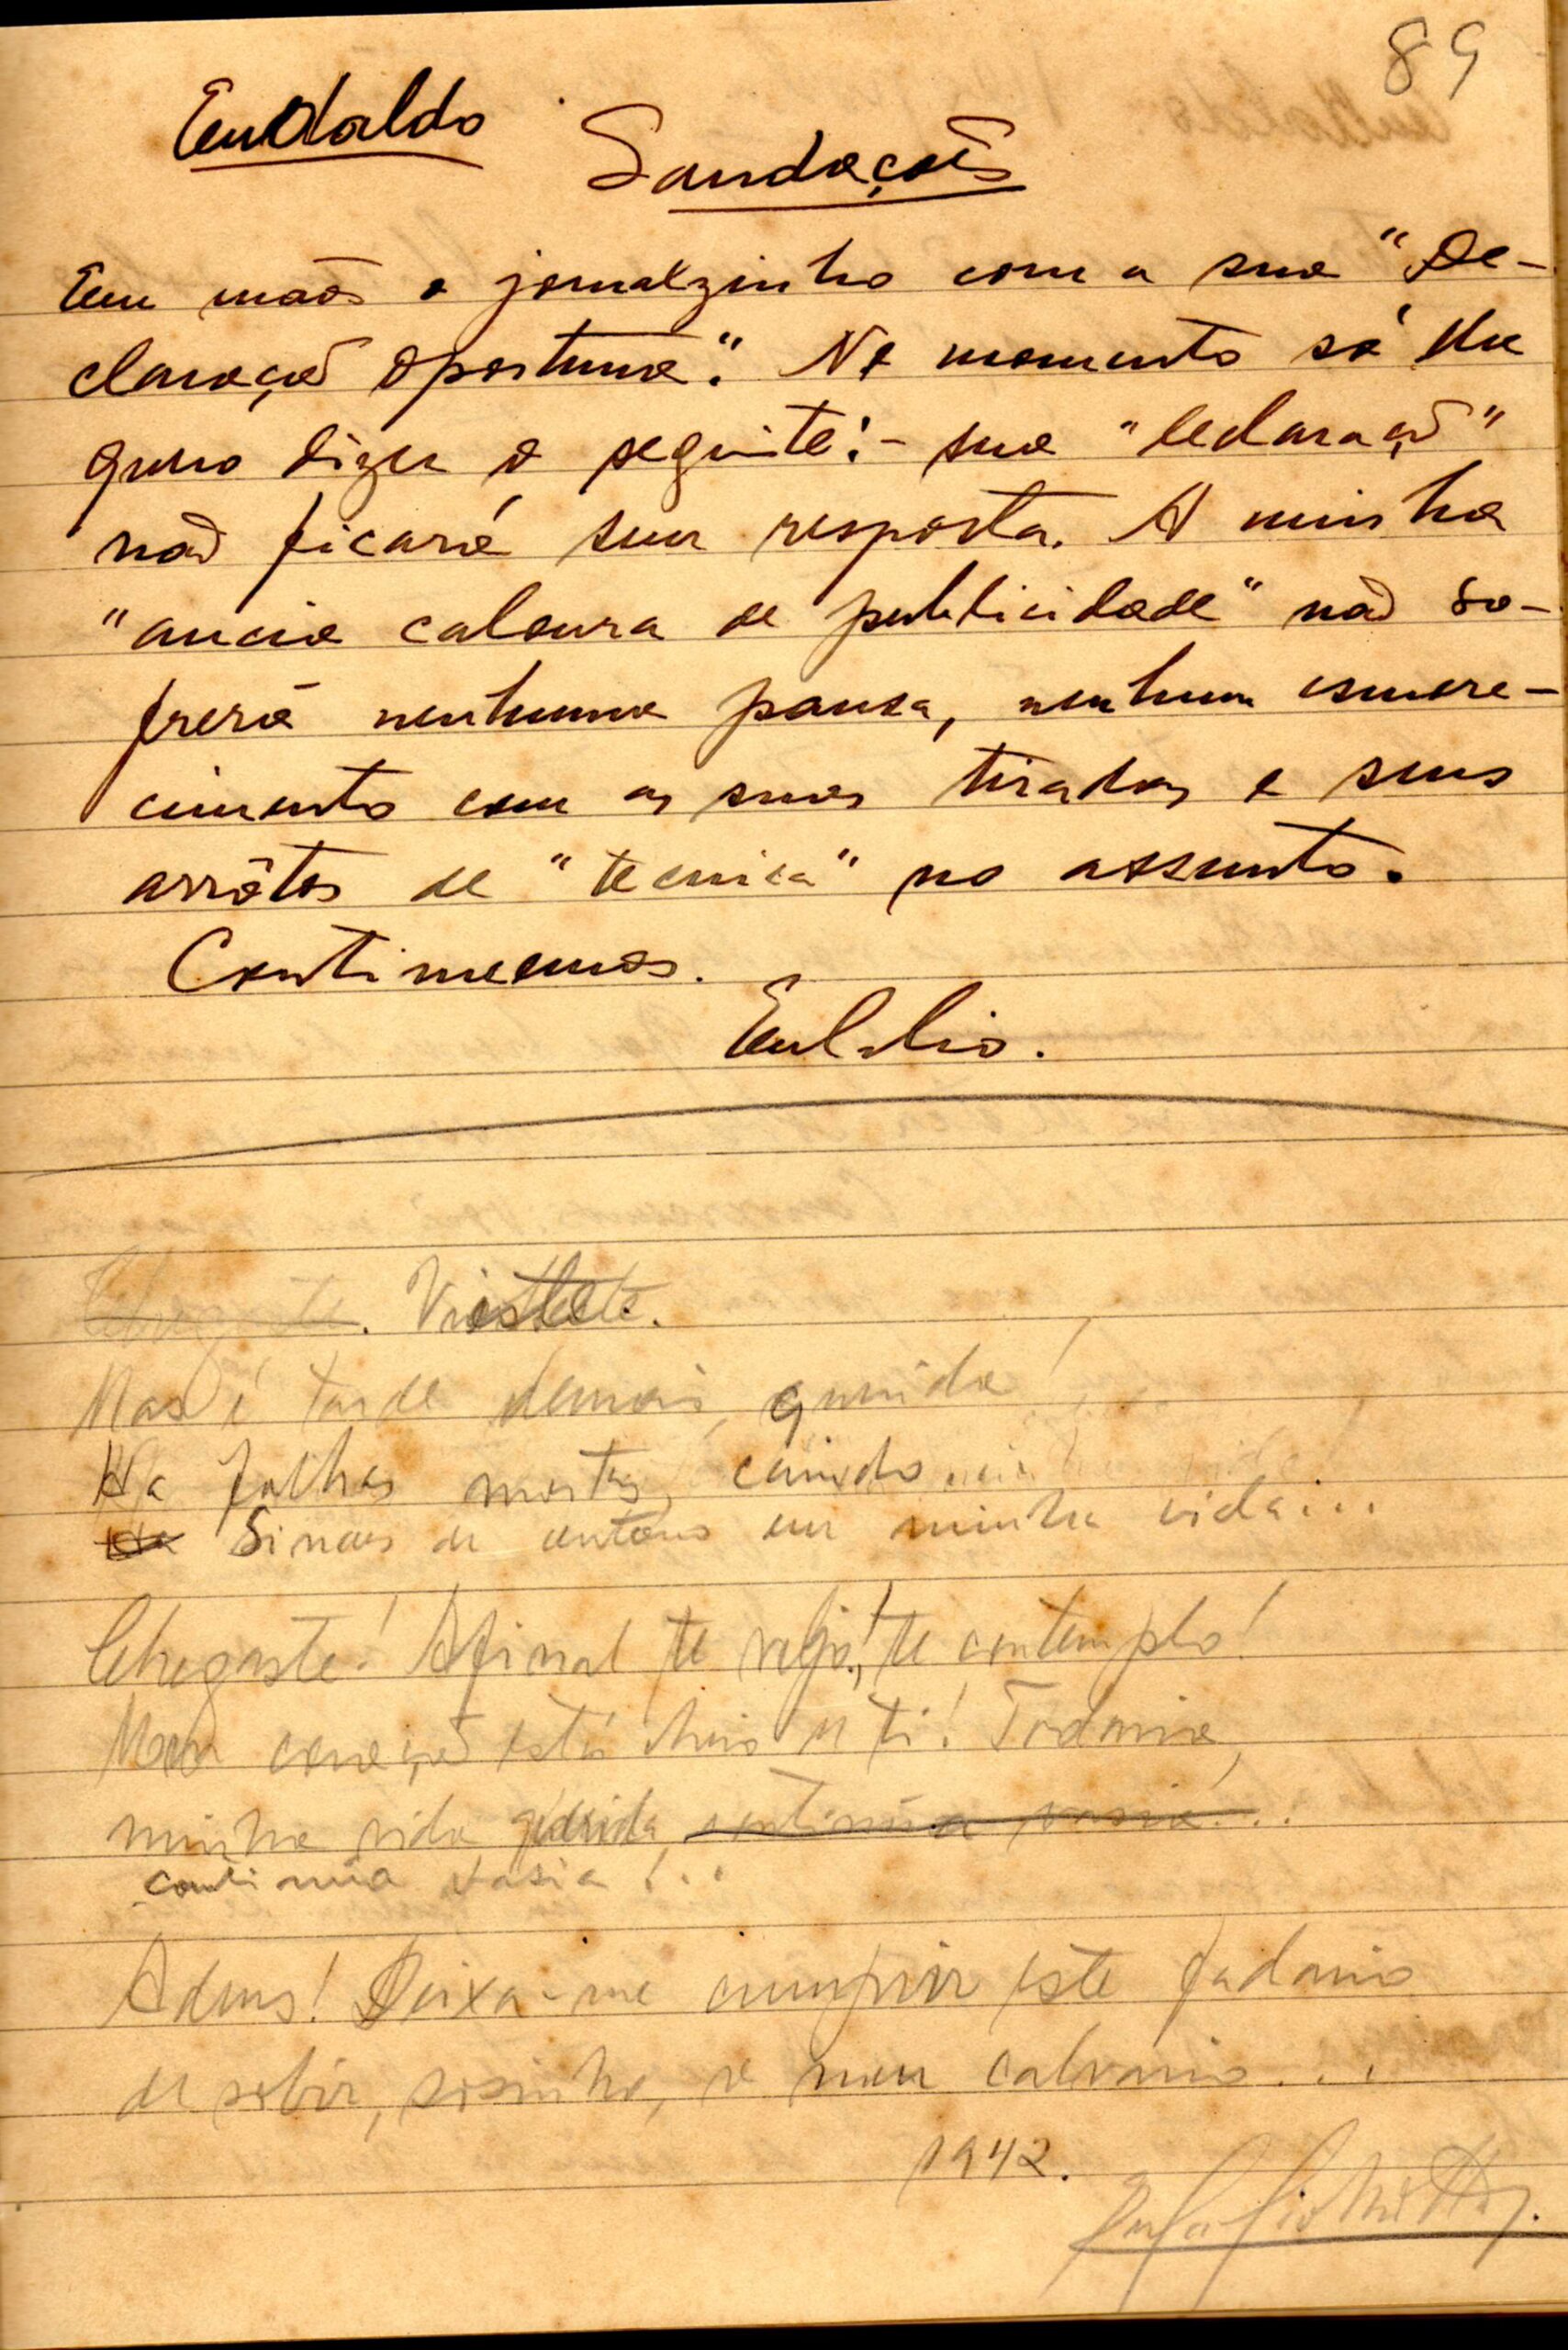 89
Eudaldo
Saudações
Em mãos o jornalzinho com a sua "De-
claração oportuna". No momento só lhe
quero dizer o seguinte:- sua "declaração"
não ficará sem resposta. A minha
"ancia caloura de publicidade" não so-
frerá nenhuma pausa, nenhum esmore-
cimento com as suas tiradas e seus
arrôtos de "tecnica" no assunto.
Continuemos.
Eulalio.
Chegaste. Vieste.
Mas é tarde demais, querida!
Ha folhas mortas, caindo
Ha Sinais de outono em minha vida...
Chegaste! Afinal te vejo!, te contemplo!
Meu coração está cheio de ti! Todavia,
minha vida, querida, continúa vasia!...
continúa vasia!...
Adeus! Deixa-me cumprir este fadario
de subir, sosinho, o meu calvario...
1942.
Eulálio Motta.